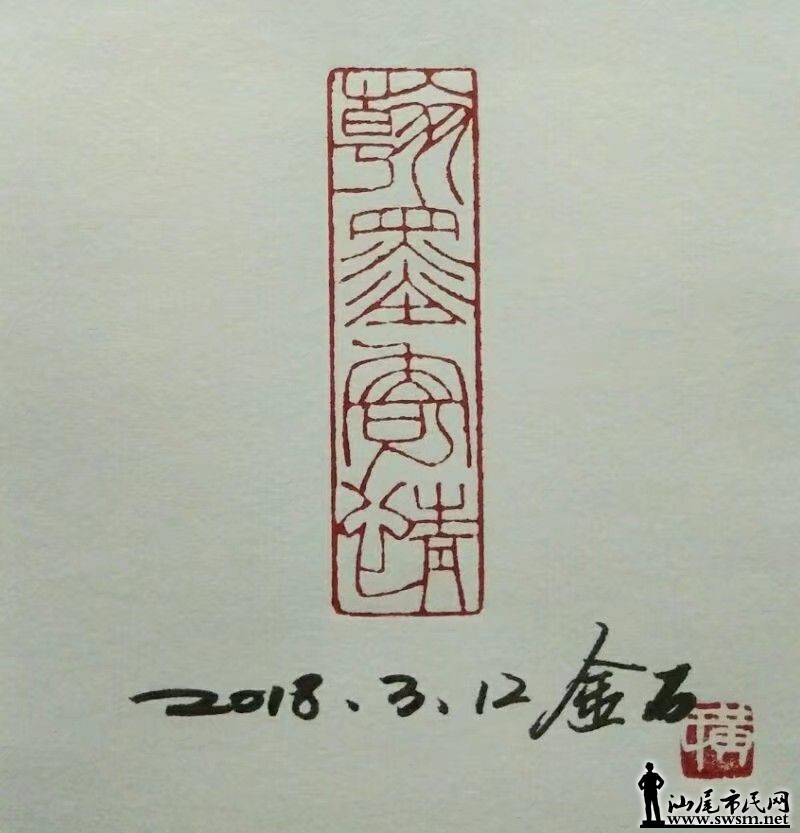 翰墨寄情
2018.3.12 金石
横
汕尾市民网
www.swsm.net